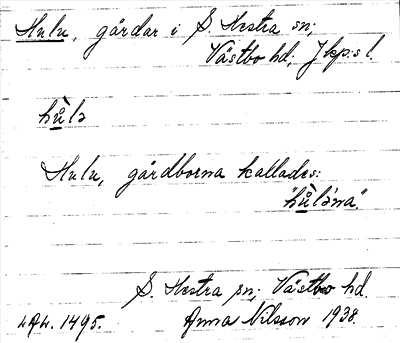 Hulu, gårdar i S. Hestra sn;
Västbo hd, Jkp:s l.
hùlə
Hulu, gårdborna kallades:
"hùləna".
S. Hestra sn; Västbo hd.
LAL. 1495. Anna Nilsson 1938.